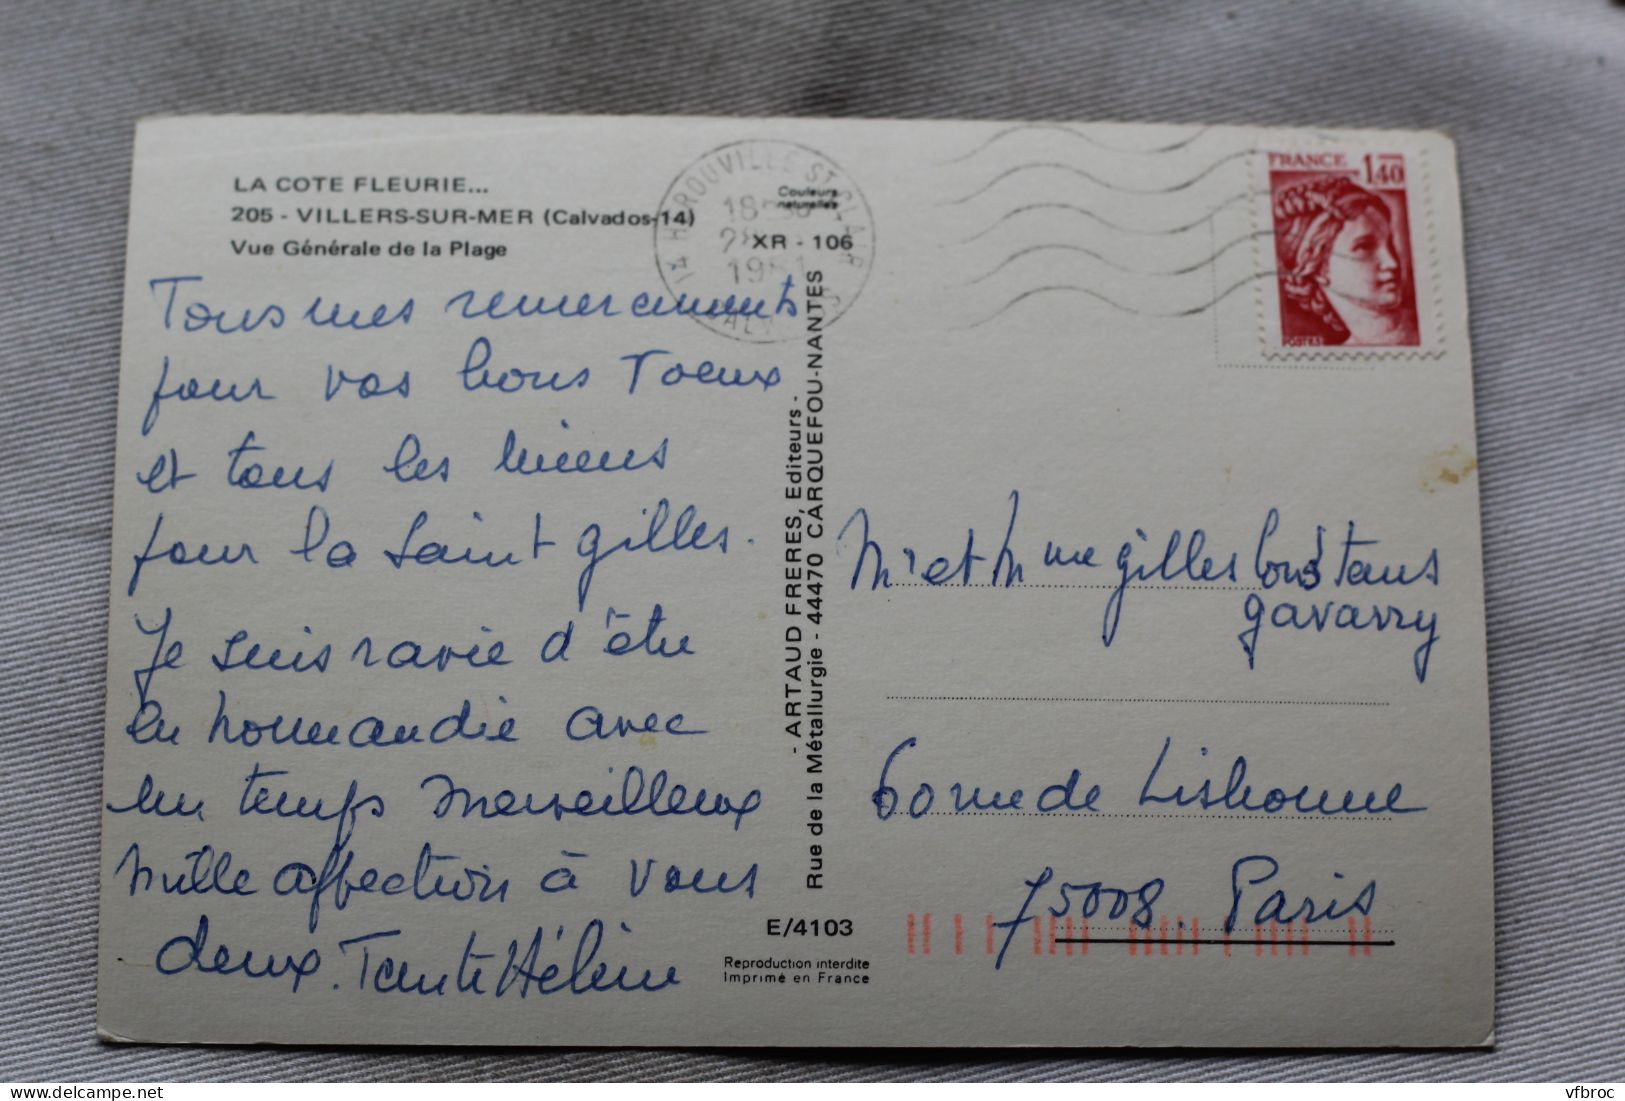 LA COTE FLEURIE...
205 - VILLERS-SUR-MER (Calvados-14)
Vue Générale de la Plage
Tous mes remerciements
pour vos bons voeux
et tous les miens
pour la Saint gilles.
Je suis ravie d'être
en normandie avec
un temps merveilleux
mille affections à vous
deux. Tante Hélène
14 HEROUVILLE ST CLAIR
18
1981
CALVADOS
Couleurs
naturelles
XR - 106
- ARTAUD FRERES, Editeurs -
Rue de la Métallurgie - 44470 CARQUEFOU-NANTES
E/4103
Reproduction interdite
Imprimé en France
FRANCE 1,40
POSTES
Mr et Mme gilles Constans
gavarry
60 rue de Lisbonne
75008. Paris
vfbroc